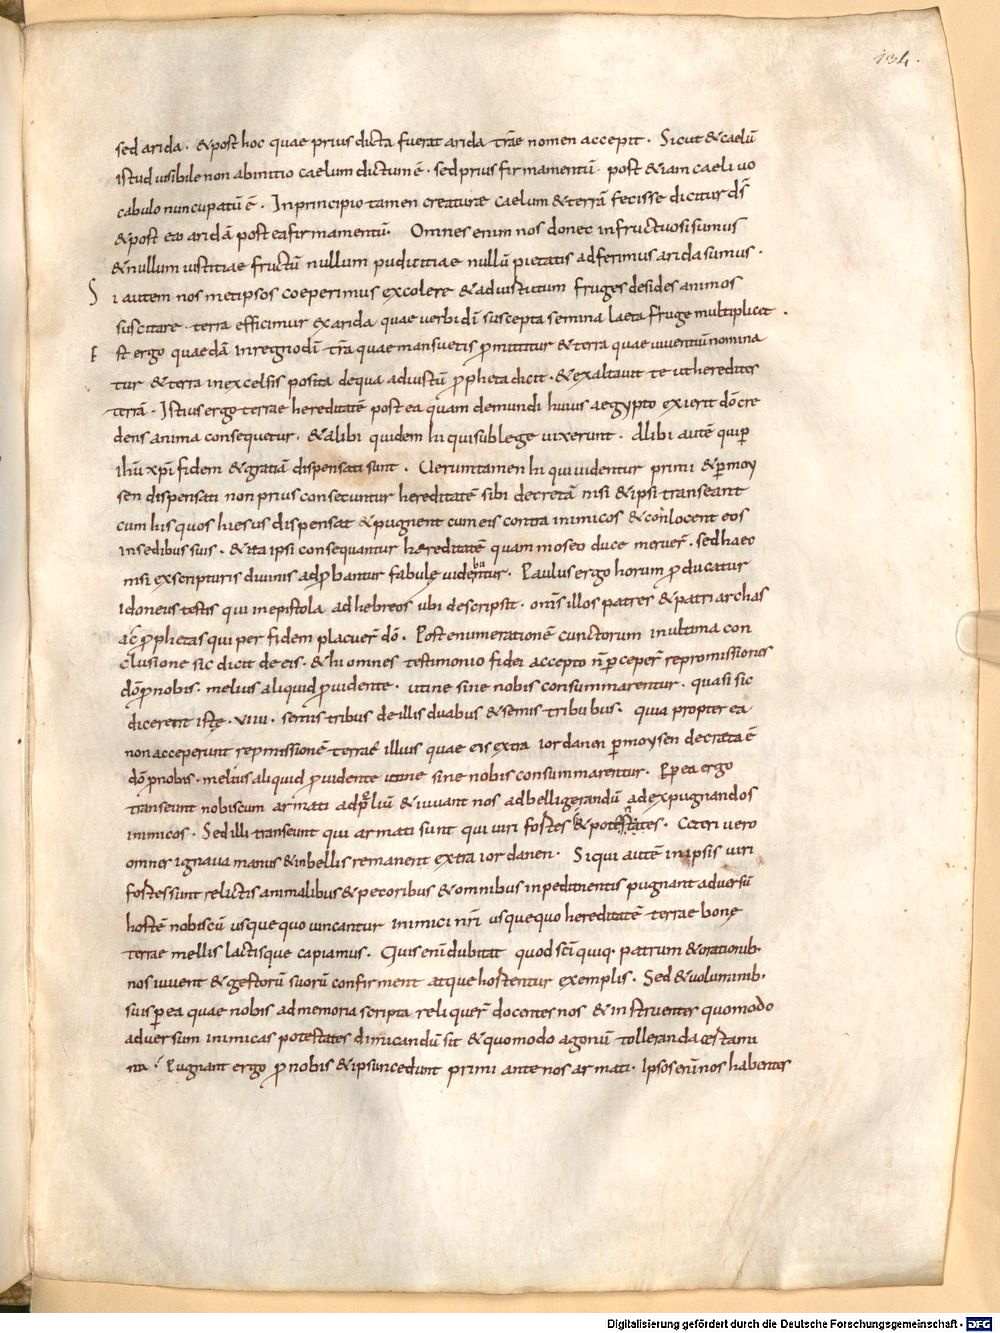 134.
sed arida · & post hoc quae prius dicta fuerat arida trae nomen accepit · Sicut & caelū
istud uisibile non ab initio caelum dictum ē · sed prius firmamentū · post & iam caeli uo
cabulo nuncupatū ē · In principio tamen creaturae caelum & terrā fecisse dicitur d̄s
& post ea aridā post ea firmamentū · Omnes enim nos donec infructuosi sumus
& nullum iustitiae fructū nullum pudicitiae nullū pietatis adferimus arida sumus ·
Si autem nosmetipsos coeperimus excolere & ad uirtutum fruges desides animos
suscitare · terra efficimur ex arida quae uerbi dī suscepta semina laeta fruge multiplicet ·
Est ergo quaedā in regno dī tra quae mansuetis pmittitur & terra quae uiuentiū nomina
tur & terra in excelsis posita de qua ad iustū ppheta dicit · & exaltauit te ut heredites
terrā · Istius ergo terrae hereditatē post ea quam de mundi huius aegypto exierit dō cre
dens anima consequetur · & alibi quidem hi qui sub lege uixerunt · Alibi autē qui p
ihū xpī fidem & gratiā dispensati sunt · Uerumtamen hi qui uidentur primi & p moy
sen dispensati non prius consecuntur hereditatē sibi decretā nisi & ipsi transeant
cum his quos hiesus dispensat & pugnent cum eis contra inimicos & conlocent eos
in sedibus suis · & ita ipsi consequantur hereditatē quam moseo duce meruer̄ · sed haec
nisi ex scripturis diuinis adpbantur fabulę uidebuntur · Paulus ergo horum pducatur
idoneus testis qui in epistola ad hebreos ubi descripsit · om̄s illos patres & patriarchas
ac pphetas qui per fidem placuer̄ dō · Post enumerationē cunctorum in ultima con
clusione sic dicit de eis · & hi omnes testimonio fidei accepto n̄ pceper̄ repromissiones
dō p nobis · melius aliquid puidente · ut ne sine nobis consummarentur · quasi sic
dicerent istę · VIIII · semis tribus de illis duabus & semis tribubus · quia propter ea
non acceperunt repmissionē terrae illius quae eis extra iordanen p moysen decreta ē
dō p nobis · melius aliquid puidente ut ne sine nobis consummarentur · Ppea ergo
transeunt nobiscum armati ad pliū & iuuant nos ad belligerandū ad expugnandos
inimicos · Sed illi transeunt qui armati sunt qui uiri fortes & potestates · Ceteri uero
omnes ignaua manus & inbellis remanent extra iordanen · Si qui autē in ipsis uiri
fortes sunt relictis animalibus & pecoribus & omnibus inpedimentis pugnant aduersū
hostē nobiscū usque quo uincantur inimici nr̄i usquequo hereditatē terrae bonę
terrae mellis lactisque capiamus · Quis enī dubitat quod scī quiq · patrum & orationib ·
nos iuuent & gestorū suorū confirment atque hortentur exemplis · Sed & uoluminib ·
suis p ea quae nobis ad memoria scripta reliquer̄ docentes nos & instruentes quomodo
aduersum inimicas potestates dimicandū sit & quomodo agonū tolleranda certami
na · Pugnant ergo p nobis & ipsi incedunt primi ante nos armati · Ipsos enī nos habentes
Digitalisierung gefördert durch die Deutsche Forschungsgemeinschaft - DFG